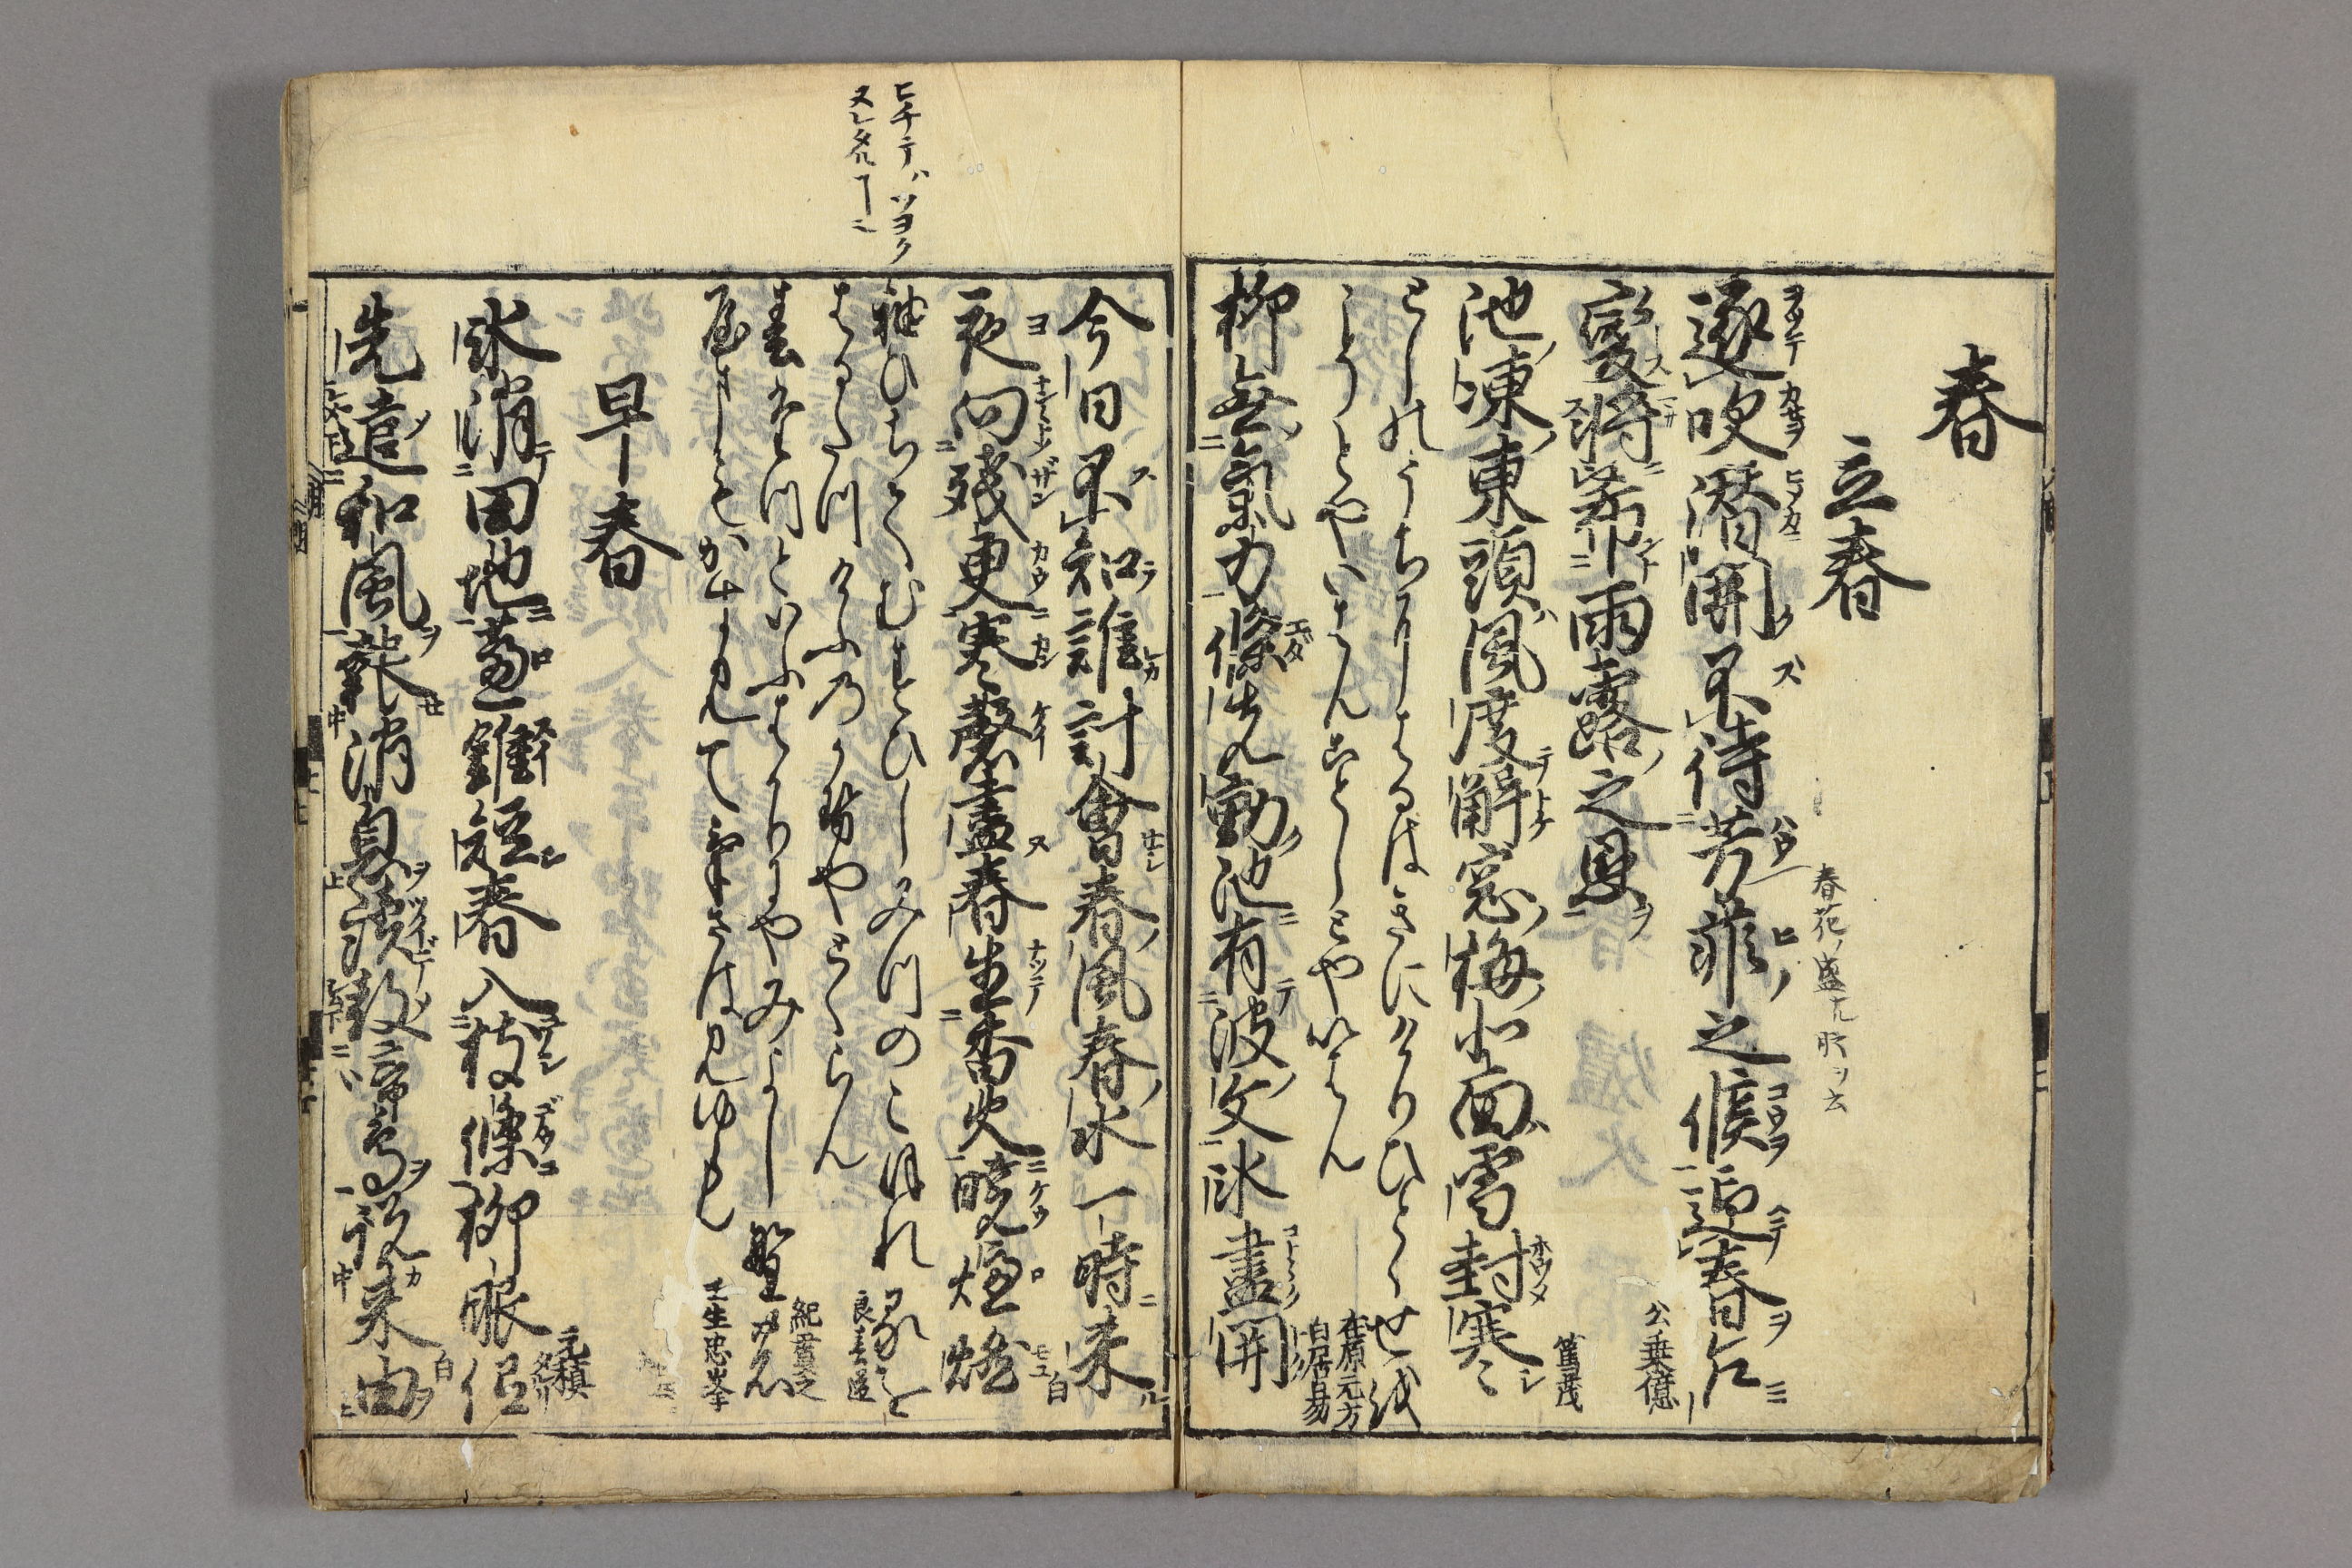 春
立春
春花ノ盛ナル時ヲ云
逐吹潜開不待芳菲之候迎春乍
變将希雨露之恩
公乗億
池凍東頭風度解窓梅北面雪封寒
篤茂
としのうちにはるはきにけりひとゝせを
こそとやいはんことしとやいはん
在原元方
柳無氣力條先動池有波文氷盡開
白居易
今日不知誰計會春風春水一時来
白
夜向残更寒磬盡春生香火暁爐燃
良春道
ヒチテハツヨク
ヌレタルコトニ
袖ひちてむすひしみつのこほれるを
はるたつけふのかせやとくらん
紀貫之
春たつといふはかりにやみよし野の
山もかすみてけさはみゆらん
壬生忠岑
早春
氷消田地蘆錐短春入枝條柳眼低
元稹
先遣和風報消息續教啼鳥説来由
白